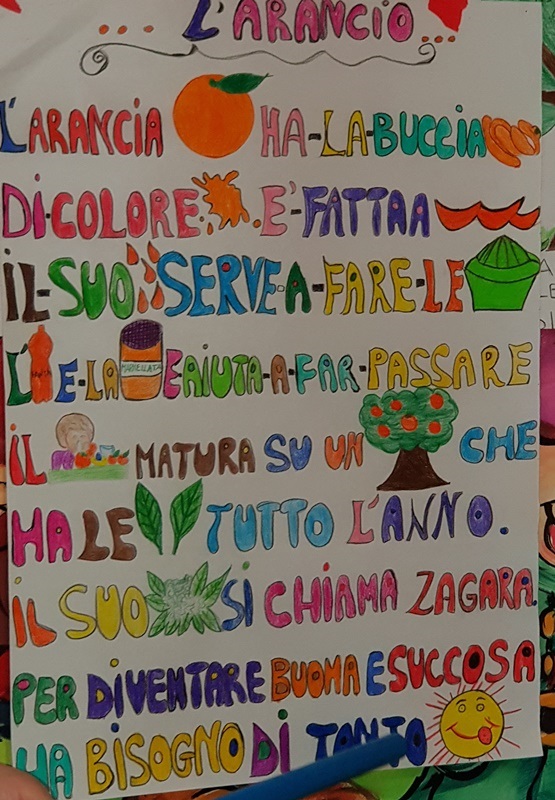 L'ARANCIO
L'ARANCIA HA-LA-BUCCIA
DI-COLORE E'-FATTAA
IL-SUO SERVE-A-FARE-LE
L' E-LA MARMELLATA E AIUTA-A-FAR-PASSARE
IL MATURA SU UN CHE
HA LE TUTTO L'ANNO.
IL SUO SI CHIAMA ZAGARA.
PER DIVENTARE BUONA E SUCCOSA
HA BISOGNO DI TANTO